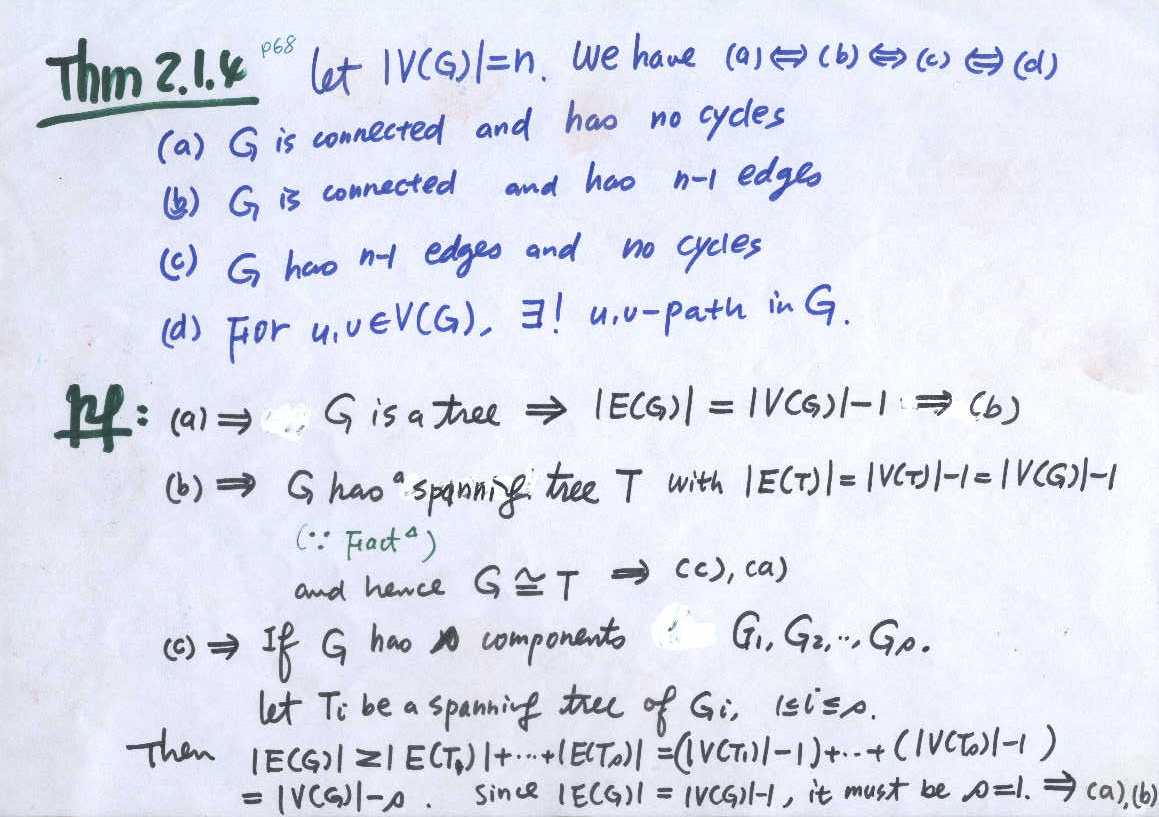 Thm 2.1.4 p68 let |V(G)|=n. We have (a)⇔(b)⇔(c)⇔(d)
(a) G is connected and has no cycles
(b) G is connected and has n-1 edges
(c) G has n-1 edges and no cycles
(d) For u,v∈V(G), ∃! u,v-path in G.
pf: (a)⇒ G is a tree ⇒ |E(G)| = |V(G)|-1 ⇒ (b)
(b) ⇒ G has a spanning tree T with |E(T)| = |V(T)|-1 = |V(G)|-1
(∵ Fact △)
and hence G ≅ T ⇒ (c), (a)
(c) ⇒ If G has s components G₁, G₂, .., Gs.
let Ti be a spanning tree of Gi, 1≤i≤s.
Then |E(G)| ≥ |E(T₁)|+...+|E(Ts)| = (|V(T₁)|-1)+...+(|V(Ts)|-1)
= |V(G)|-s. Since |E(G)| = |V(G)|-1, it must be s=1. ⇒ (a),(b)